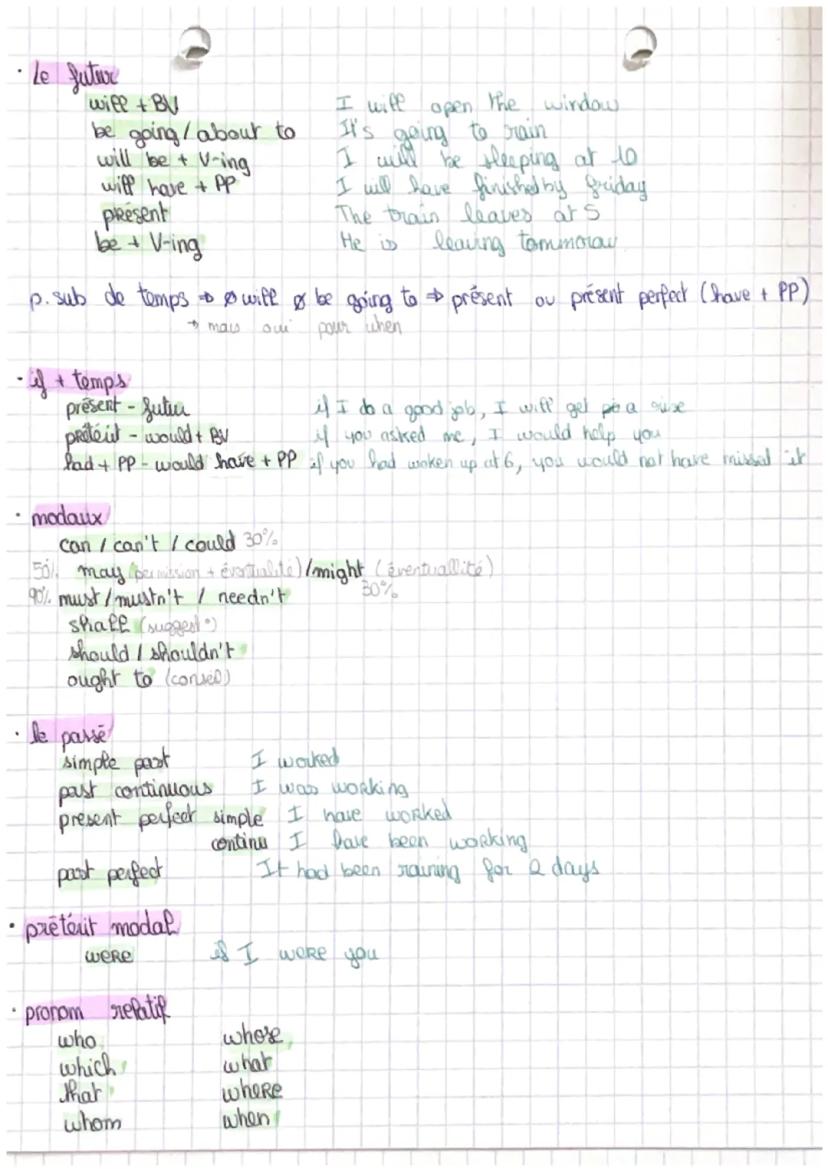 · Le futur
will + BV I will open the window
be going / about to It's going to rain
will be + V-ing I will be sleeping at 10
will have + PP I will have finished by friday
présent The train leaves at 5
be + V-ing He is leaving tommorow
p. sub de temps → ø will ø be going to ⇒ présent ou présent perfect (have + PP)
→ mais oui pour when
· if + temps
présent - futur if I do a good job, I will get a rise
prétérit - would + BV if you asked me, I would help you
had + PP - would have + PP if you had woken up at 6, you would not have missed it
· modaux
can / can't / could 30%
50% may (permission + éventualité) / might (éventuallité)
90% must / mustn't / needn't 30%
shall (suggest°)
should / shouldn't
ought to (conseil)
· le passé
simple past I worked
past continuous I was working
present perfect simple I have worked
continu I have been working
past perfect It had been raining for 2 days
· prétérit modal
were if I were you
· pronom relatif
who whose
which what
that where
whom when